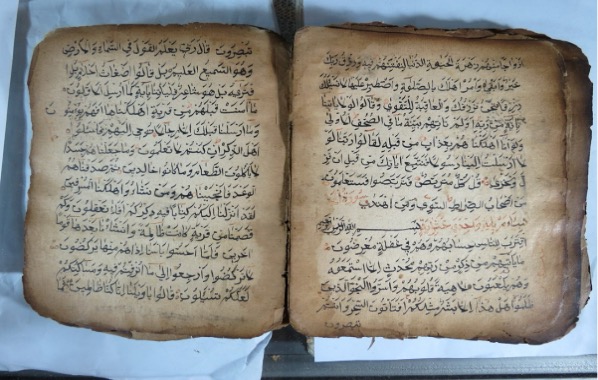 ازواجا منهم زهرة الحيوة الدنيا لنفتنهم فيه ورزق ربك
خير وابقى وامر اهلك بالصلوة واصطبر عليها لا نسئلك
رزقا نحن نرزقك والعاقبة للتقوى وقالوا لولا ياتينا
باية من ربه اولم تاتهم بينة ما في الصحف الاولى
ولو انا اهلكناهم بعذاب من قبله لقالوا ربنا لو
لا ارسلت الينا رسولا فنتبع اياتك من قبل ان نذ
ل ونخزى قل كل متربص فتربصوا فستعلمون
من اصحاب الصراط السوي ومن اهتدى سورة
بسم الله الرحمن الرحيم
اقترب للناس حسابهم وهم في غفلة معرضون
ما ياتيهم من ذكر من ربهم محدث الا استمعوه
وهم يلعبون لاهية قلوبهم واسروا النجوى الذين
ظلموا هل هذا الا بشر مثلكم افتاتون السحر وانتم
تبصرون
تبصرون قال ربي يعلم القول في السماء والارض
وهو السميع العليم بل قالوا اضغاث احلام بل ا
فتريه بل هو شاعر فلياتنا باية كما ارسل الاولون
ما امنت قبلهم من قرية اهلكناها افهم يؤمنون
وما ارسلنا قبلك الا رجالا نوحي اليهم فاسئلوا
اهل الذكر ان كنتم لا تعلمون وما جعلناهم جسدا
لا ياكلون الطعام وما كانوا خالدين ثم صدقناهم
الوعد فانجيناهم ومن نشاء واهلكنا المسرفين
لقد انزلنا اليكم كتابا فيه ذكركم افلا تعقلون وكم
قصمنا من قرية كانت ظالمة وانشأنا بعدها قوما
اخرين فلما احسوا باسنا اذا هم منها يركضون
لا تركضوا وارجعوا الى ما اترفتم فيه ومساكنكم
لعلكم تسئلون قالوا يا ويلنا انا كنا ظالمين فما